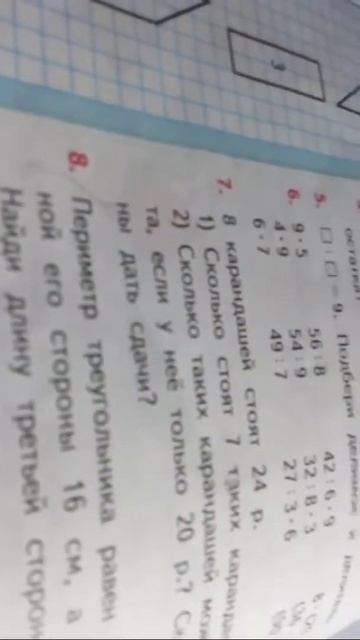 3
остатей
5. □ : □ = 9. Подбери делимое и
6. 9 · 5 56 : 8 42 : 6 · 9
4 · 9 54 : 9 32 : 8 · 3
6 · 7 49 : 7 27 : 3 · 6
7. 8 карандашей стоят 24 р.
1) Сколько стоят 7 таких каранда
2) Сколько таких карандашей мо
та, если у неё только 20 р.?
ны дать сдачи?
8. Периметр треугольника равен
ной его стороны 16 см, а
Найди длину третьей сторон